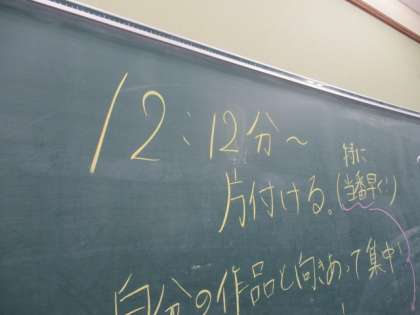 12:12分～
特に
片付ける。(当番早く!)
自分の作品と向きあって集中!